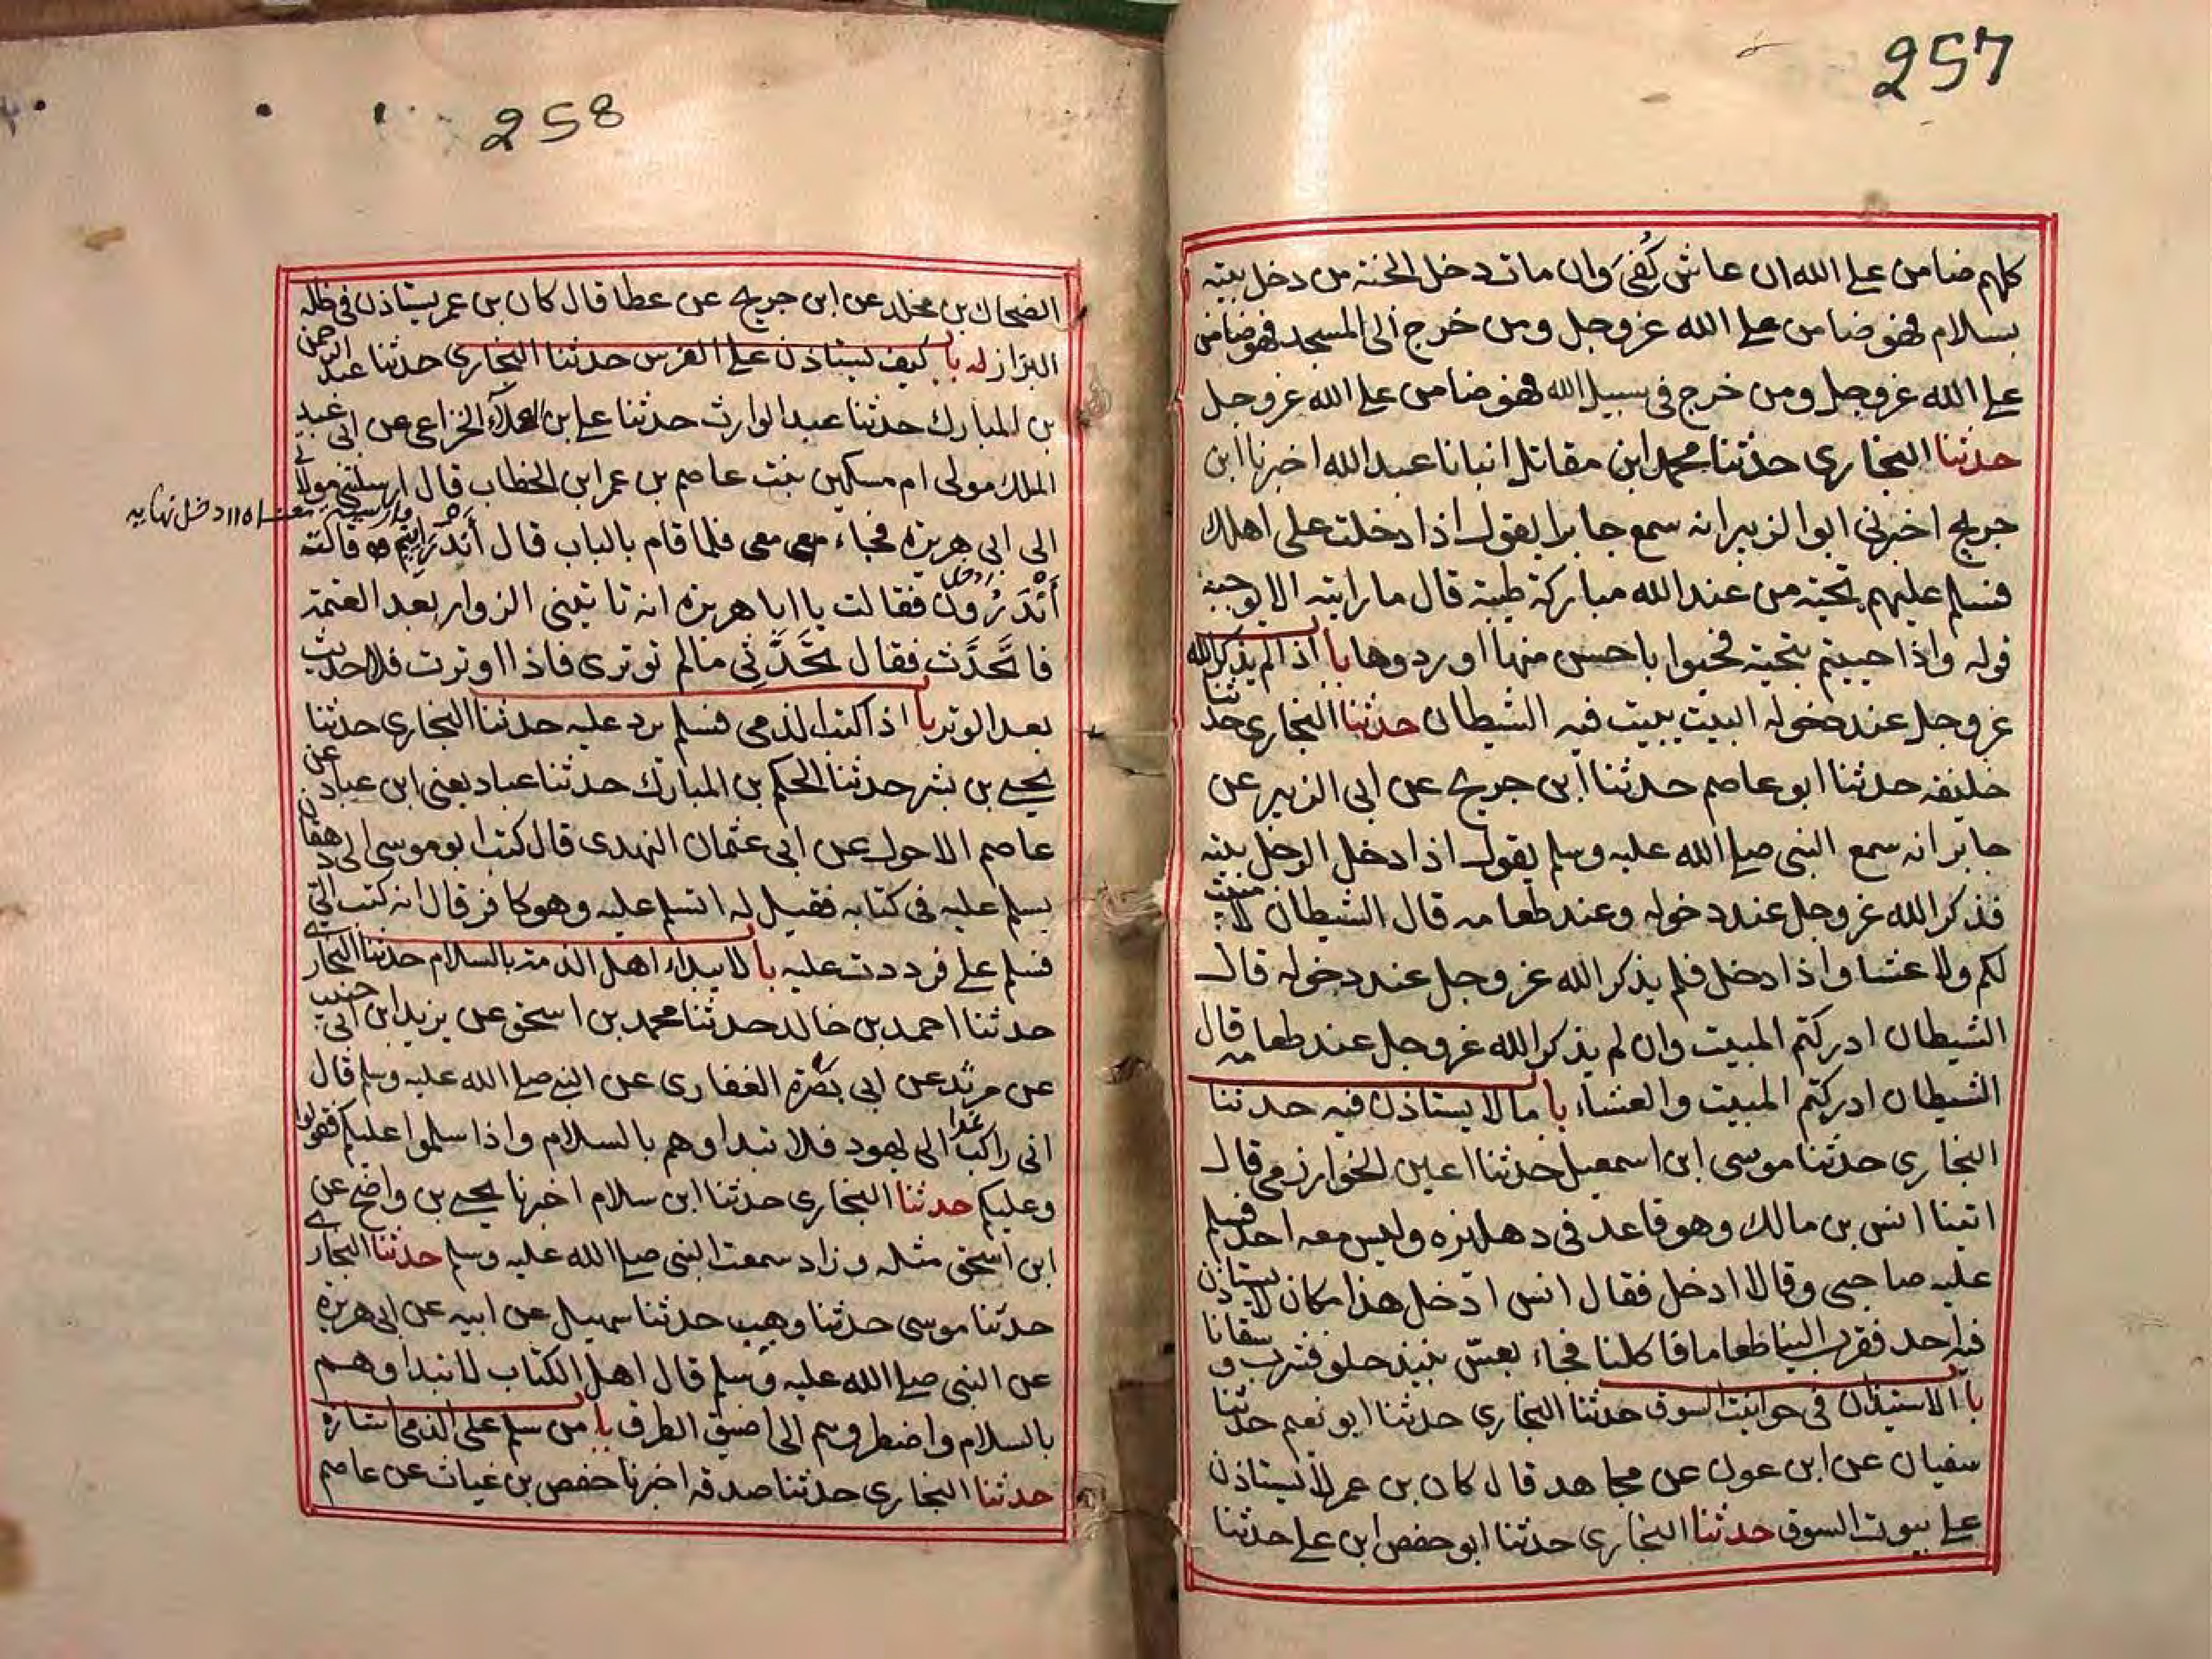 257
كلهم ضامن على الله ان عاش كُفىَ وان مات دخل الجنة من دخل بيته
بسلام فهو ضامن على الله عزوجل ومن خرج الى المسجد فهو ضامن
على الله عزوجل ومن خرج فى سبيل الله فهو ضامن على الله عزوجل
حدثنا البخارى حدثنا محمد ابن مقاتل انبانا عبد الله اخبرنا ابن
جريج اخبرنى ابو الزبير انه سمع جابرا يقول اذا دخلت على اهلك
فسلم عليهم تحية من عند الله مباركة طيبة قال ما رايته الا توجيه
قوله واذا حييتم بتحية فحيوا باحسن منها او ردوها باب اذا لم يذكر الله
عزوجل عند دخوله البيت يبيت فيه الشيطان حدثنا البخارى حدثنا
خليفه حدثنا ابو عاصم حدثنا ابن جريج عن ابى الزبير عن
جابر انه سمع النبى صلى الله عليه وسلم يقول اذا دخل الرجل بيته
فذكر الله عزوجل عند دخوله وعند طعامه قال الشيطان لا مبيت
لكم ولا عشا واذا دخل فلم يذكر الله عزوجل عند دخوله قال
الشيطان ادركتم المبيت وان لم يذكر الله عزوجل عند طعامه قال
الشيطان ادركتم المبيت والعشاء باب ما لا يستاذن فيه حدثنا
البخارى حدثنا موسى ابن اسمعيل حدثنا اعين الخوارزمى قال
اتينا انس بن مالك وهو قاعد فى دهليزه وليس معه احد فسلم
عليه صاحبى وقال ادخل فقال انس ادخل هذا مكان لا يستاذن
فيه احد فقرب الينا طعاما فاكلنا فجاء بعسّ نبيذ حلو فشرب و سقانا
باب الاستيذان فى حوانيت السوق حدثنا البخارى حدثنا ابو نعيم حدثنا
سفيان عن ابن عون عن مجاهد قال كان بن عمر لا يستاذن
على بيوت السوق حدثنا البخارى حدثنا ابو حفص ابن على حدثنا
258
الضحاك بن مخلد عن ابن جريج عن عطا قال كان بن عمر يستاذن فى ظله
البزاز له باب كيف يستاذن على الفرس حدثنا البخارى حدثنا عبد الرحمن
بن المبارك حدثنا عبد الوارث حدثنا على ابن العلاء الخزاعى عن ابى عبد
الملك مولى ام مسكين بنت عاصم بن عمر ابن الخطاب قال ارسلتنى مولاتى
الى ابى هريرة فجاء معى فلما قام بالباب قال أَنْدَرَايِيْم قالت
أَنْدَرُونْ فقالت يا ابا هريرة انه تاتينى الزوار بعد العتمة
فاتحَدَّث فقال تحَدَّثِي مالم توترى فاذا اوترت فلا حديث
بعد الوتر باب اذا كتب الذمى فسلم يرد عليه حدثنا البخارى حدثنا
يحيى بن بشر حدثنا الحكم بن المبارك حدثنا عباد يعنى ابن عباد عن
عاصم الاحول عن ابى عثمان النهدى قال كتب ابو موسى الى دهقان
يسلم عليه فى كتابه فقيل له اتسلم عليه وهو كافر قال انه كتب الىّ
فسلم على فرددت عليه باب لا يبداء اهل الذمة بالسلام حدثنا البخارى
حدثنا احمد بن خالد حدثنا محمد بن اسحق عن يزيد ابن ابى حبيب
عن مرثد عن ابى بَصْرَة الغفارى عن النبى صلى الله عليه وسلم قال
انى راكب غدا الى يهود فلا تبداوهم بالسلام واذا سلموا عليكم فقولوا
وعليكم حدثنا البخارى حدثنا ابن سلام اخبرنا يحيى بن واضح عن
ابن اسحق مثله وزاد سمعت النبى صلى الله عليه وسلم حدثنا البخارى
حدثنا موسى حدثنا وهيب حدثنا سهيل عن ابيه عن ابى هريرة
عن النبى صلى الله عليه وسلم قال اهل الكتاب لا تبداوهم
بالسلام واضطروهم الى اضيق الطرق باب من سلم على الذمى اشارة
حدثنا البخارى حدثنا صدقه اخبرنا حفص بن غياث عن عاصم